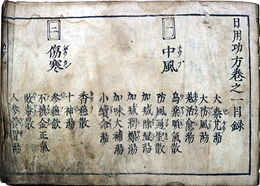 日用功方卷之 目録
一 中風
大秦艽湯
大防風湯
烏藥順氣散
防風通聖散
加減除湿湯
加減潤燥湯
加味大補湯
小續命湯
二 傷寒
香蘓散
十神湯
参蘓飲
不換金正氣
敗毒散